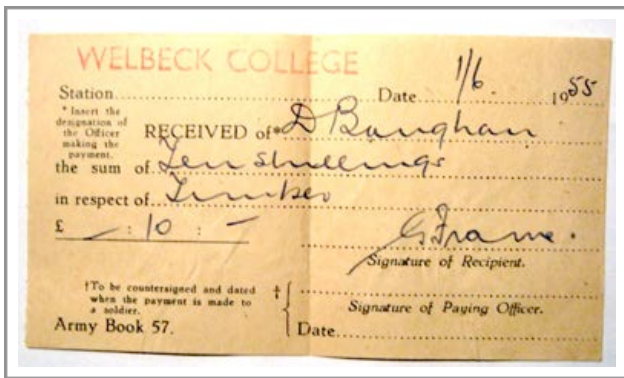 WELBECK COLLEGE
Station Date 1/6 1955
* Insert the designation of the Officer making the payment.
RECEIVED of* D Baughan
the sum of Ten Shillings
in respect of Timber
£ - : 10 : -
G Frame.
Signature of Recipient.
†To be countersigned and dated when the payment is made to a soldier.
†
Signature of Paying Officer.
Army Book 57.
Date